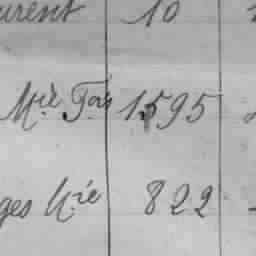 urent 10
M.ie Fois 1595
ges M.ie 822